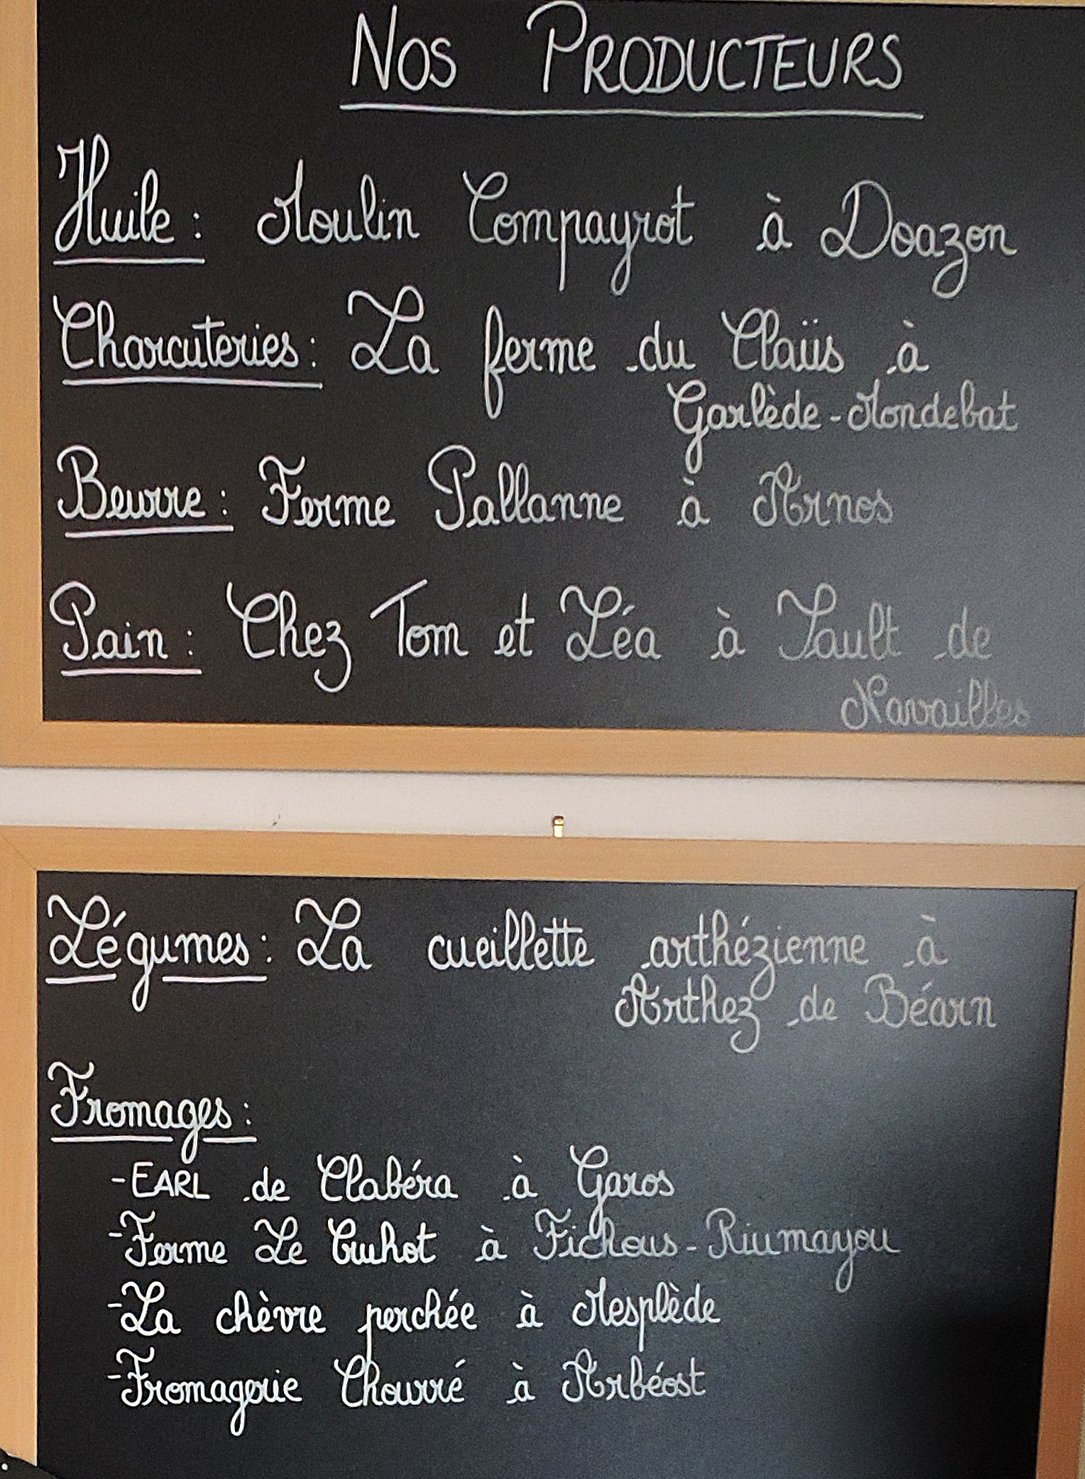 NOS PRODUCTEURS
Huile : Moulin Compayrot à Doazon
Charcuteries : La ferme du Claüs à
Garlède-Mondebat
Beurre : Ferme Pallanne à Arnos
Pain : Chez Tom et Léa à Sault de
Navailles
Légumes : La cueillette arthézienne à
Arthez de Béarn
Fromages :
- EARL de Clabéra à Garos
- Ferme Le Cruhot à Fichous-Riumayou
- La chèvre perchée à Mesplède
- Fromagerie Chourré à Arbéost